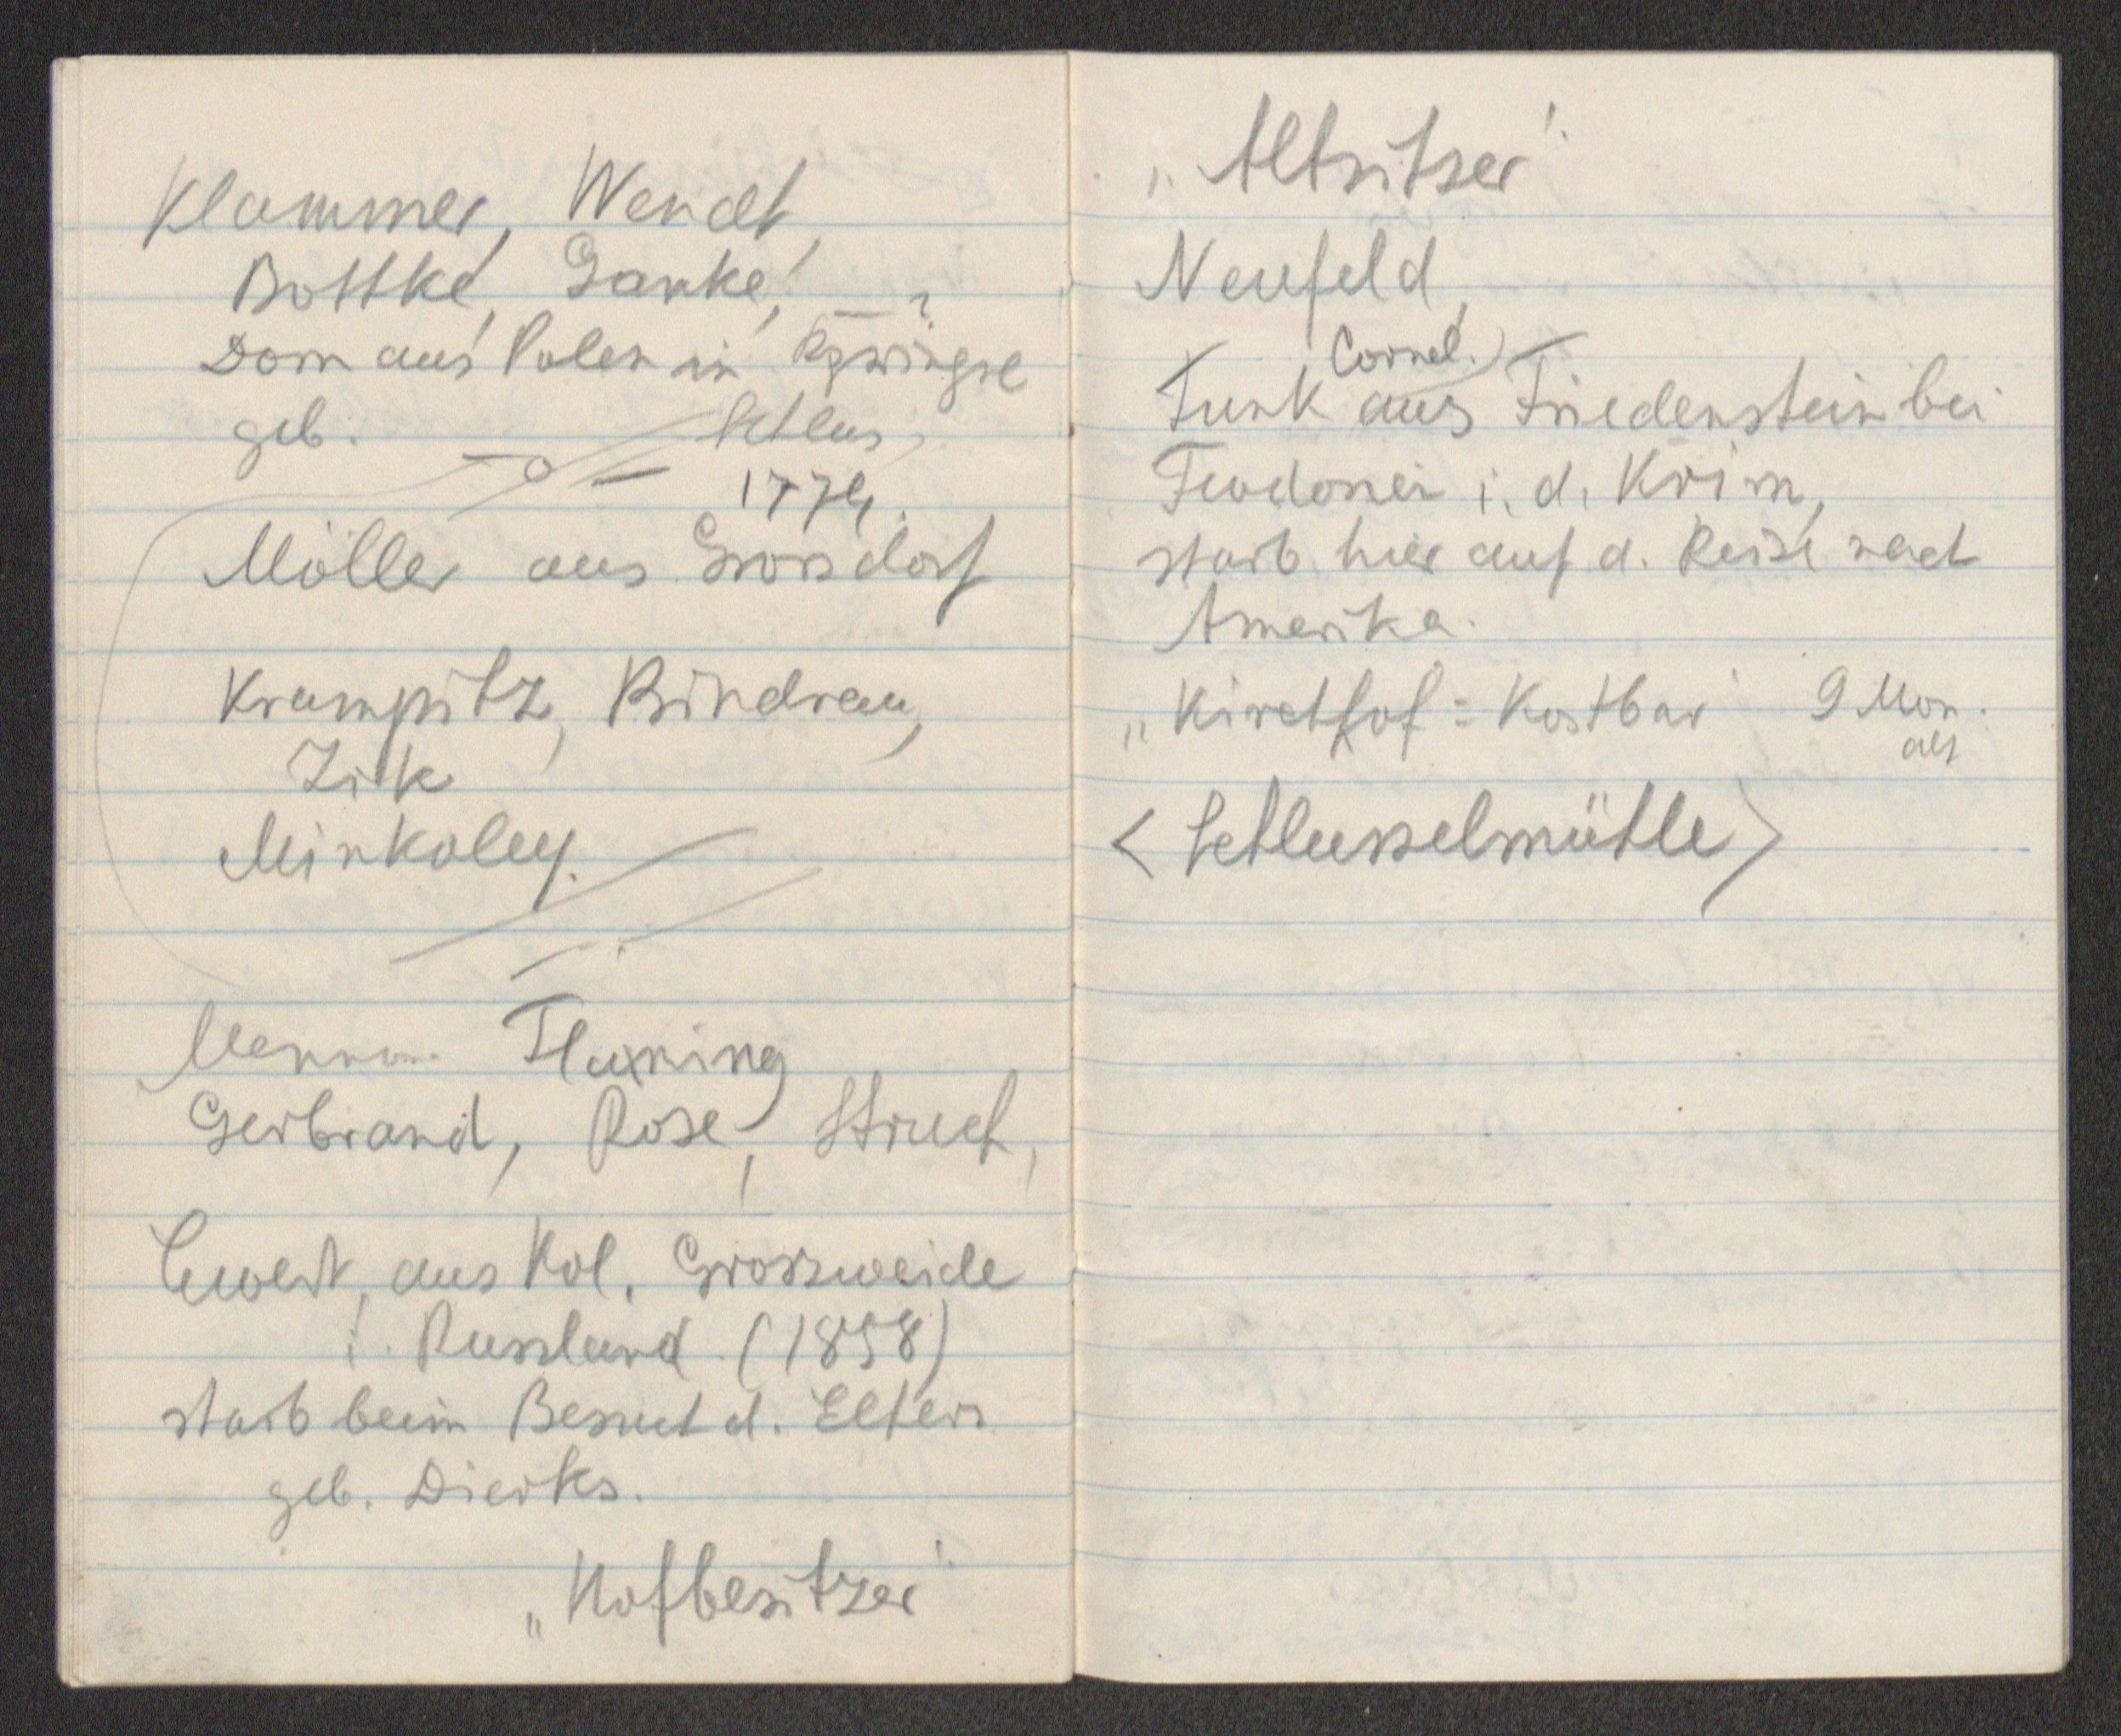 Klammer, Wendt,
Bottke, Ganke,
Dorn aus Polen in
geb. Schlus
1774.
Möller aus Grossdorf
Krampitz, Bindrau,
Zirk
Minkoley.
Mennon. Flaming
Gerbrand, Rose, Struch,
Ewert, aus Kol. Grossweide
i. Russland (1858)
starb beim Besuch d. Eltern
geb. Dierks.
„Hofbesitzer"
„Altsitzer"
Neufeld,
Cornel.
Funk aus Friedenstein bei
Feodosia i. d. Krim,
starb hier auf d. Reise nach
Amerika.
„Kirchhof = Kostbar" 9 Mon.
alt
< Schlusselmühle >